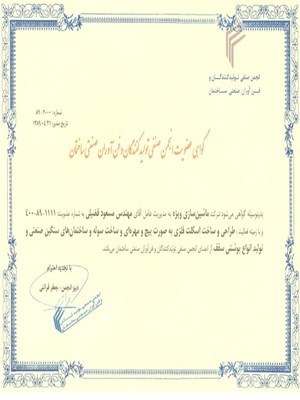 انجمن صنفی تولیدکنندگان و
فن آوران صنعتی ساختمان
شماره: ۸۹۰۲۰۰۰
گواهی عضویت در انجمن صنفی تولیدکنندگان و فن آوران صنعتی ساختمان
بدینوسیله گواهی می‌شود شرکت ماشین‌سازی ویژه به مدیریت عامل آقای مهندس مسعود فضیلی به شماره عضویت ۱۱۱۱-۸۹-۴۰۰
و با زمینه فعالیت: طراحی و ساخت اسکلت فلزی به صورت پیچ و مهره‌ای و ساخت سوله و ساختمان‌های سنگین صنعتی و
تولید انواع پوشش سقف از اعضای انجمن صنفی تولیدکنندگان و فن‌آوران صنعتی ساختمان می‌باشد.
با تجدید احترام
دبیر انجمن - جعفر قرائتی